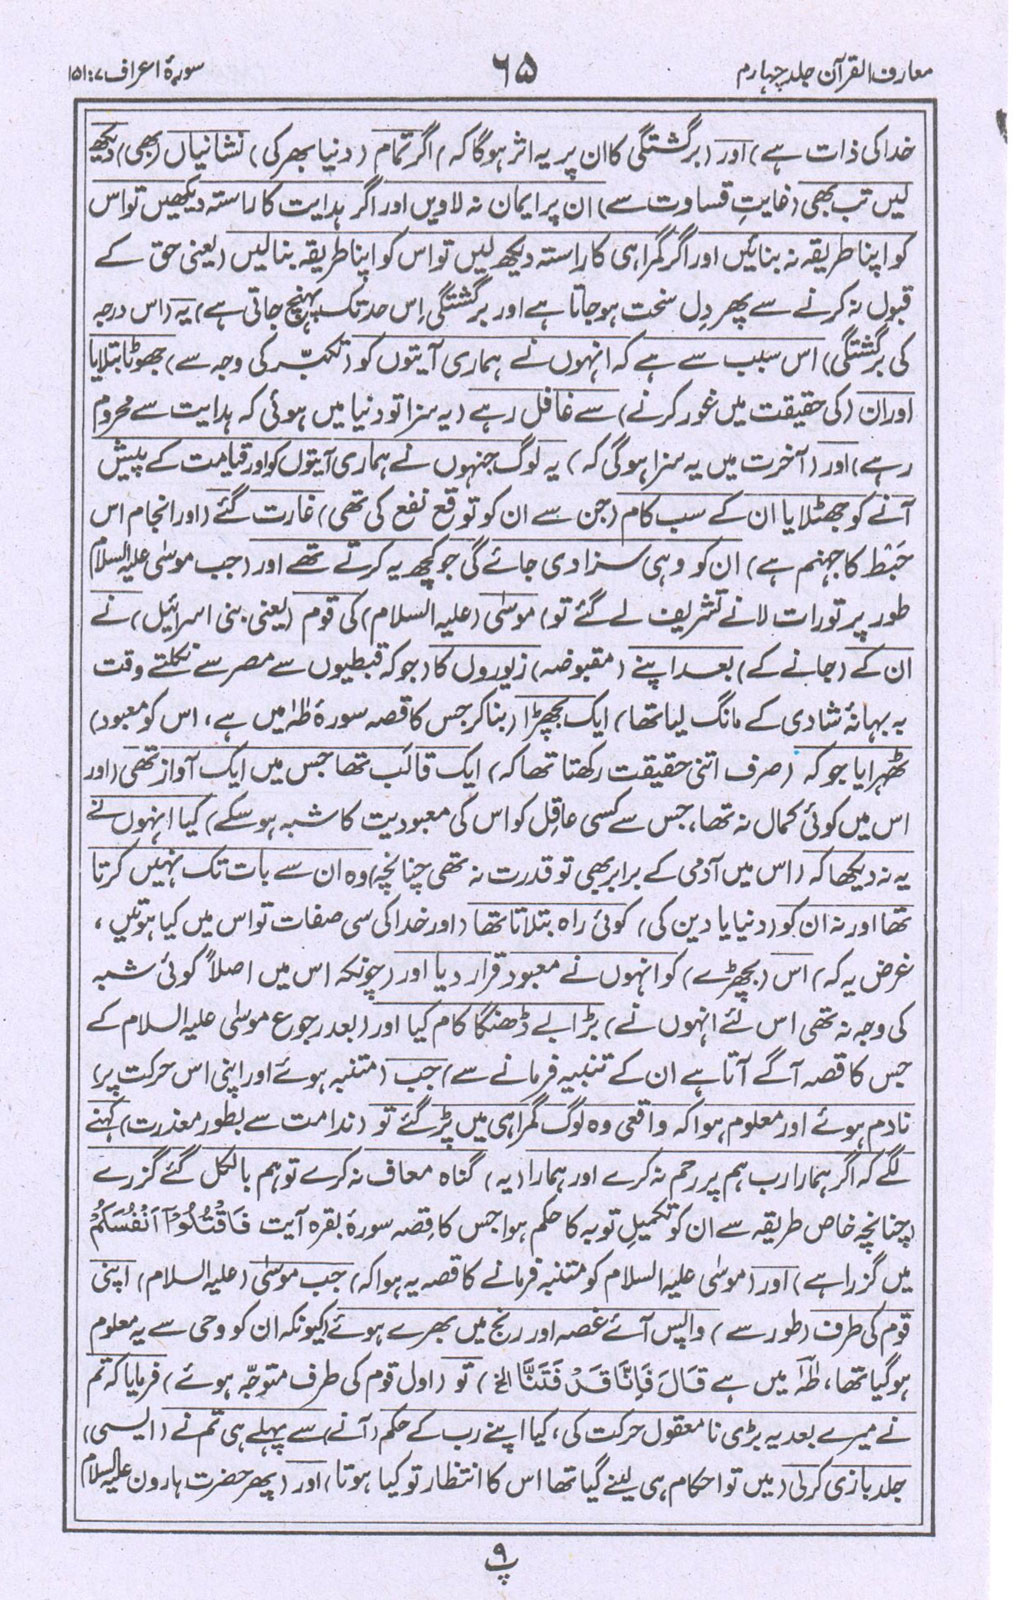 معارف القرآن جلد چہارم
۶۵
سورۂ اعراف ۷: ۱۵۱
خدا کی ذات ہے) اور (برگشتگی کا ان پر یہ اثر ہوگا کہ) اگر تمام (دنیا بھر کی) نشانیاں (بھی) دیکھ
لیں تب بھی (غایتِ قساوت سے) ان پر ایمان نہ لاویں اور اگر ہدایت کا راستہ دیکھیں تو اس
کو اپنا طریقہ نہ بنائیں اور اگر گمراہی کا راستہ دیکھ لیں تو اس کو اپنا طریقہ بنا لیں (یعنی حق کے
قبول نہ کرنے سے پھر دِل سخت ہوجاتا ہے اور برگشتگی اِس حد تک پہنچ جاتی ہے) یہ (اس درجہ
کی برگشتگی) اس سبب سے ہے کہ انہوں نے ہماری آیتوں کو (تکبّر کی وجہ سے) جھوٹا بتلایا
اور ان (کی حقیقت میں غور کرنے) سے غافل رہے (یہ سزا تو دنیا میں ہوئی کہ ہدایت سے محروم
رہے) اور (آخرت میں یہ سزا ہوگی کہ) یہ لوگ جنہوں نے ہماری آیتوں کو اور قیامت کے پیش
آنے کو جھٹلایا ان کے سب کام (جن سے ان کو توقع نفع کی تھی) غارت گئے (اور انجام اس
حَبْط کا جہنم ہے) ان کو وہی سزا دی جائے گی جو کچھ یہ کرتے تھے اور (جب موسٰی علیہ السلام
طور پر تورات لانے تشریف لے گئے تو) موسٰی (علیہ السلام) کی قوم (یعنی بنی اسرائیل) نے
ان کے (جانے کے) بعد اپنے (مقبوضہ) زیوروں کا (جو کہ قبطیوں سے مصر سے نکلتے وقت
بہ بہانۂ شادی کے مانگ لیا تھا) ایک بچھڑا (بنا کر جس کا قصہ سورۂ طٰہٰ میں ہے، اس کو معبود)
ٹھہرایا جو کہ (صرف اتنی حقیقت رکھتا تھا کہ) ایک قالَب تھا جس میں ایک آواز تھی (اور
اس میں کوئی کمال نہ تھا، جس سے کسی عاقل کو اس کی معبودیت کا شبہ ہوسکے) کیا انہوں نے
یہ نہ دیکھا کہ (اس میں آدمی کے برابر بھی تو قدرت نہ تھی چنانچہ) وہ ان سے بات تک نہیں کرتا
تھا اور نہ ان کو (دنیا یا دین کی) کوئی راہ بتلاتا تھا (اور خدا کی سی صفات تو اس میں کیا ہوتیں،
غرض یہ کہ) اس (بچھڑے) کو انہوں نے معبود قرار دیا اور (چونکہ اس میں اصلاً کوئی شبہ
کی وجہ نہ تھی اس لئے انہوں نے) بڑا بے ڈھنگا کام کیا اور (بعد رجوع موسٰی علیہ السلام کے
جس کا قصہ آگے آتا ہے ان کے تنبیہ فرمانے سے) جب (متنبہ ہوئے اور اپنی اس حرکت پر)
نادم ہوئے اور معلوم ہوا کہ واقعی وہ لوگ گمراہی میں پڑ گئے تو (ندامت سے بطور معذرت) کہنے
لگے کہ اگر ہمارا رب ہم پر رحم نہ کرے اور ہمارا (یہ) گناہ معاف نہ کرے تو ہم بالکل گئے گزرے
(چنانچہ خاص طریقہ سے ان کو تکمیلِ توبہ کا حکم ہوا جس کا قصہ سورۂ بقرہ آیت فَاقْتُلُوْٓا اَنْفُسَكُمْ
میں گزرا ہے) اور (موسٰی علیہ السلام کو متنبہ فرمانے کا قصہ یہ ہوا کہ) جب موسٰی (علیہ السلام) اپنی
قوم کی طرف (طور سے) واپس آئے غصہ اور رنج میں بھرے ہوئے (کیونکہ ان کو وحی سے یہ معلوم
ہوگیا تھا، طٰہٰ میں ہے قَالَ فَاِنَّا قَدْ فَتَنَّا الخ) تو (اول قوم کی طرف متوجّہ ہوئے) فرمایا کہ تم
نے میرے بعد یہ بڑی نامعقول حرکت کی، کیا اپنے رب کے حکم (آنے) سے پہلے ہی تم نے (ایسی)
جلد بازی کرلی (میں تو احکام ہی لینے گیا تھا اس کا انتظار تو کیا ہوتا) اور (پھر حضرت ہارون علیہ السلام
پ ۹